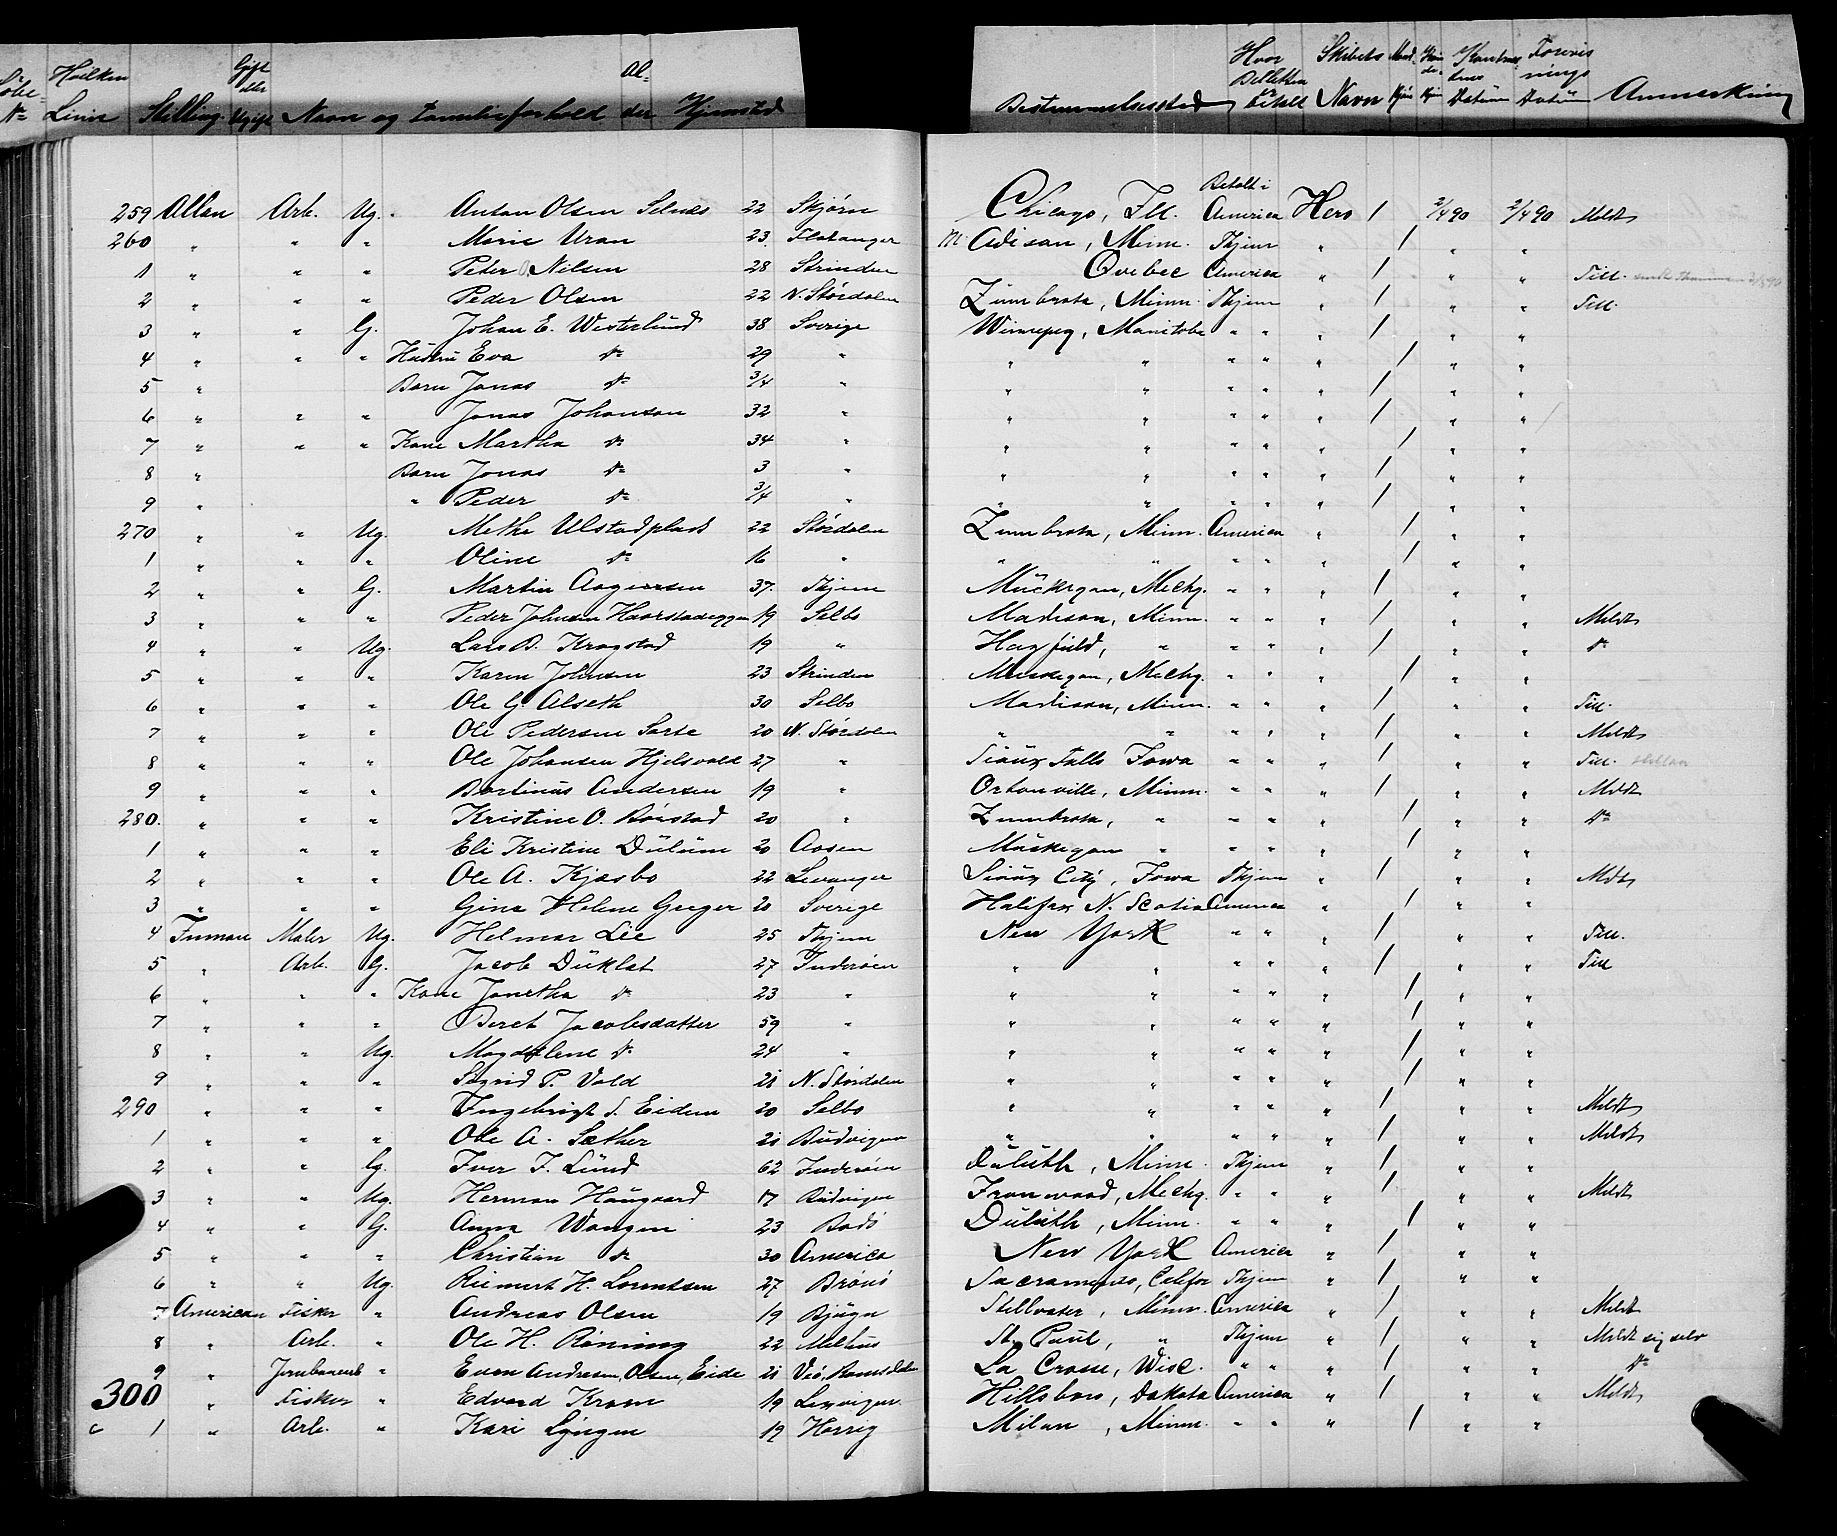 Løbe- № Hvilken Linie Stilling Gift eller Ugift Navn og Familieforhold Al- der Hjemstad Bestemmelsessted Hvor Billetten betalt Skibets Navn Datum Datum Anmerkning
259 Allan Arb. Ug. Anton Olsen Selnes 22 Skjørn Chicago, Ill. Betalt i America Hero 1 2/4 90 2/4 90 Meldt
260 " " " Marie Uran 23 Flatanger Madison, Minn. Thjem " 1 " "
1 " " " Peter Nilsen 28 Strinden Qvebec America " 1 " " Till.
2 " " " Peder Olsen 22 N. Stördalen Zumbrota, Minn. Thjem " 1 " " Till.
3 " " G. Johan E. Westerlund 38 Sverige Winnepeg, Manitoba " " " 1 " "
4 " " " Hustru Eva do 29 " " " " " " 1 " "
5 " Barn Jonas do 3/4 " " " " " " 1 " "
6 " " " Jonas Johanson 32 " " " " " " 1 " "
7 " " " Kone Martha do 34 " " " " " " 1 " "
8 " Barn Jonas do 3 " " " " " " 1 " "
9 " " Peder do 3/4 " " " " " " 1 " "
270 " " Ug. Methe Ulstadplads 22 Stördalen Zumbrota, Minn. America " 1 " "
1 " " " Oline do 16 " " " " " " 1 " "
2 " " G. Martin Aagesen 37 Thjem Muskegon, Mechg. " " " 1 " "
3 " " " Peder Johnsen Haarstadeggen 19 Selbo Madison, Minn. " " " 1 " " Meldt
4 " " Ug. Lars B. Kragstad 19 " Hayfield, " " " " 1 " " do
5 " " " Karen Johnsen 23 Strinden Muskegon, Mechg. " " " 1 " "
6 " " " Ole G. Alseth 30 Selbo Madison, Minn. " " " 1 " " Till.
7 " " " Ole Pedersen Sarte 20 N. Stördalen " " " " " 1 " " Meldt
8 " " " Ole Johansen Hjelsvold 27 " Sioux Falls Iowa " " " 1 " " Till.
9 " " " Bortinus Andersen 19 " Ortonville, Minn. " " " 1 " " Meldt
280. " " " Kristine O. Rönstad 20 " Zumbrota, " " " " 1 " " do
1 " " " Eli Kristine Dullum 20 Aasen Muskegon " " " " 1 " "
2 " " " Ole A. Kjesbo 22 Levanger Sioux City, Iowa Thjem " 1 " " Mdt
3 " " " Gina Helene Greger 20 Sverige Halifax N. Scotia America " 1 " "
4 Inman Maler Ug. Helmar Lie 25 Thjem New York " " " 1 " " Till.
5 " Arb. G. Jacob Düklet 27 Inderöen " " " " " 1 " " Till
6 " " " Kone Janetha do 23 " " " " " " 1 " "
7 " " " Beret Jacobsdatter 59 " " " " " " 1 " "
8 " " Ug. Magdalene do 24 " " " " " " 1 " "
9 " " " Sigrid P. Vold 21 N. Stördalen " " " " " 1 " "
290 " " " Ingebrigt S. Eidem 20 Selbo " " " " " 1 " " Meldt
1 " " " Ole A. Sæther 21 Budvigen " " " " " 1 " " Meldt
2 " " G. Iver I. Lund 62 Inderöen Duluth, Minn. Thjem " 1 " "
3 " " Ug. Herman Haugaard 17 Budvigen Ironwood, Mechg. " " " 1 " " Meldt
4 " " G. Anna Wangen 23 Bodö Duluth, Minn. " " " 1 " "
5 " " " Christian do 30 America New York America " 1 " "
6 " " Ug. Reimert H. Lorentsen 27 Brönö Sacramento, Califor Thjem " 1 " "
7 American Fisker " Andreas Olsen 19 Bjugn Stillvater, Minn. America " 1 " " Meldt
8 " Arb. " Ole H. Röning 22 Melhus St. Paul, " Thjem " 1 " " Meldt sig selv
9 " Jernbanearb " Even Andresen Olsen, Eide 21 Veö, Romsdalen La Crosse, Wisc. " " " 1 " " do
300 " Fisker " Edvard Krom 19 Lexvigen Hillsboro, Dakota America " 1 " " Meldt
1 " Arb. " Kari Lyngen 19 Horrig Milan, Minn. " " " 1 " "